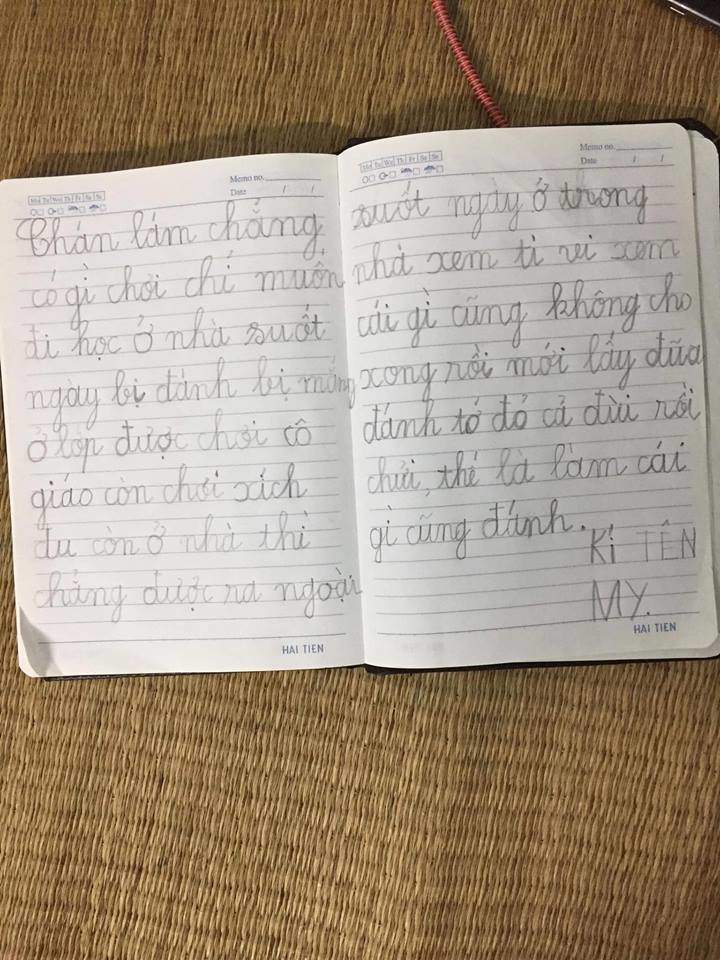 Mo Tu We Th Fr Sa Su
Memo no.
Date / /
Chán lắm chẳng
có gì chơi chỉ muốn
đi học ở nhà suốt
ngày bị đánh bị mắng
ở lớp được chơi cô
giáo còn chơi xích
đu còn ở nhà thì
chẳng được ra ngoài
HAI TIEN
Mo Tu We Th Fr Sa Su
Memo no.
Date / /
suốt ngày ở trong
nhà xem ti vi xem
cái gì cũng không cho
xong rồi mới lấy đũa
đánh tớ đỏ cả đùi rồi
chửi, thế là làm cái
gì cũng đánh.
KÍ TÊN
MY.
HAI TIEN